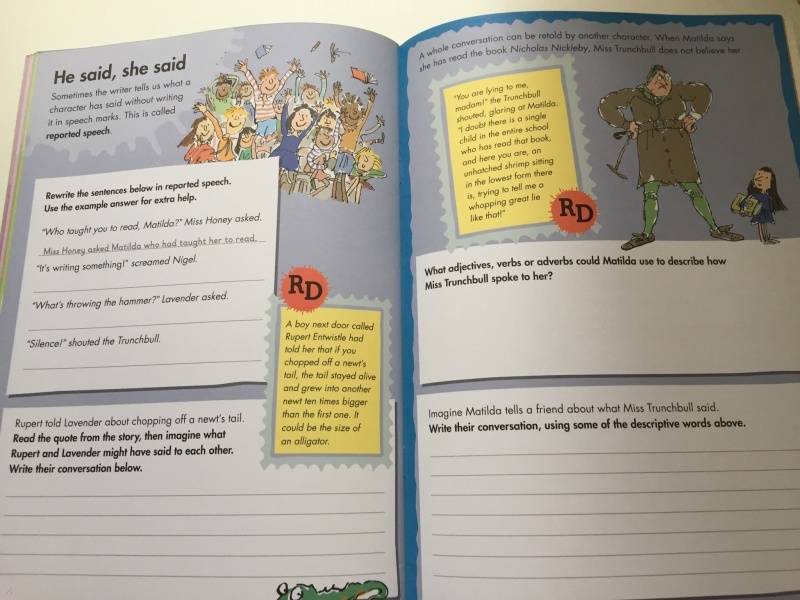 He said, she said
Sometimes the writer tells us what a
character has said without writing
it in speech marks. This is called
reported speech.
Rewrite the sentences below in reported speech.
Use the example answer for extra help.
"Who taught you to read, Matilda?" Miss Honey asked.
Miss Honey asked Matilda who had taught her to read.
"It's writing something!" screamed Nigel.
"What's throwing the hammer?" Lavender asked.
"Silence!" shouted the Trunchbull.
RD
A boy next door called
Rupert Entwistle had
told her that if you
chopped off a newt's
tail, the tail stayed alive
and grew into another
newt ten times bigger
than the first one. It
could be the size of
an alligator.
Rupert told Lavender about chopping off a newt's tail.
Read the quote from the story, then imagine what
Rupert and Lavender might have said to each other.
Write their conversation below.
A whole conversation can be retold by another character. When Matilda says
she has read the book Nicholas Nickleby, Miss Trunchbull does not believe her.
"You are lying to me,
madam!" the Trunchbull
shouted, glaring at Matilda.
"I doubt there is a single
child in the entire school
who has read that book,
and here you are, an
unhatched shrimp sitting
in the lowest form there
is, trying to tell me a
whopping great lie
like that!"
RD
What adjectives, verbs or adverbs could Matilda use to describe how
Miss Trunchbull spoke to her?
Imagine Matilda tells a friend about what Miss Trunchbull said.
Write their conversation, using some of the descriptive words above.